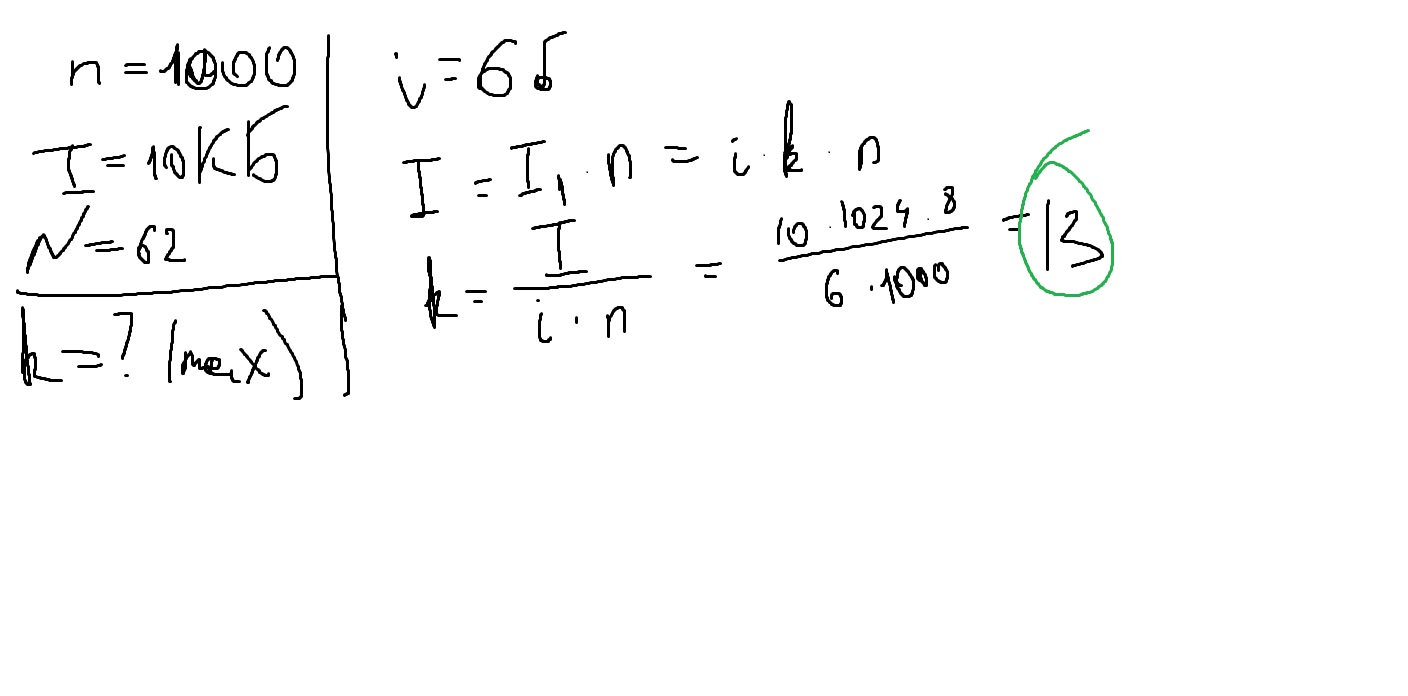 n = 1000
I = 10 КБ
N = 62
k = ? (max)
i = 6 б
I = I₁ · n = i · k · n
k = I / (i · n) = (10 · 1024 · 8) / (6 · 1000) = 13